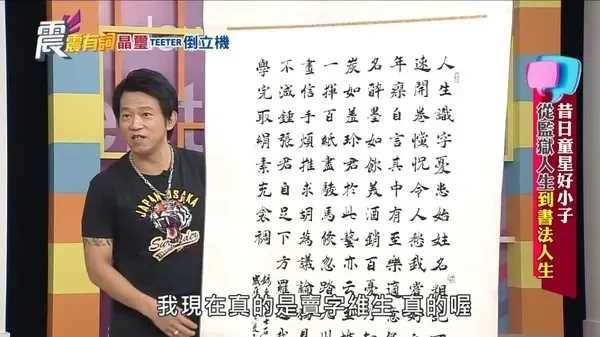 震震有詞 晶璽 TEETER 倒立機
人生識字憂患始姓名粗記
速開卷惝怳令人愁我嘗好
年瘳自言其中有至樂適意
名醉墨如飲美酒銷百憂
君於此藝亦云至
一揮百紙盡駿馬倏忽踏
畫信手煩推求胡為議論
不減鍾張君自足下方羅
學完取絹素充衾裯
昔日童星好小子
從監獄人生到書法人生
JAPAN OSAKA
我現在真的是賣字維生 真的喔